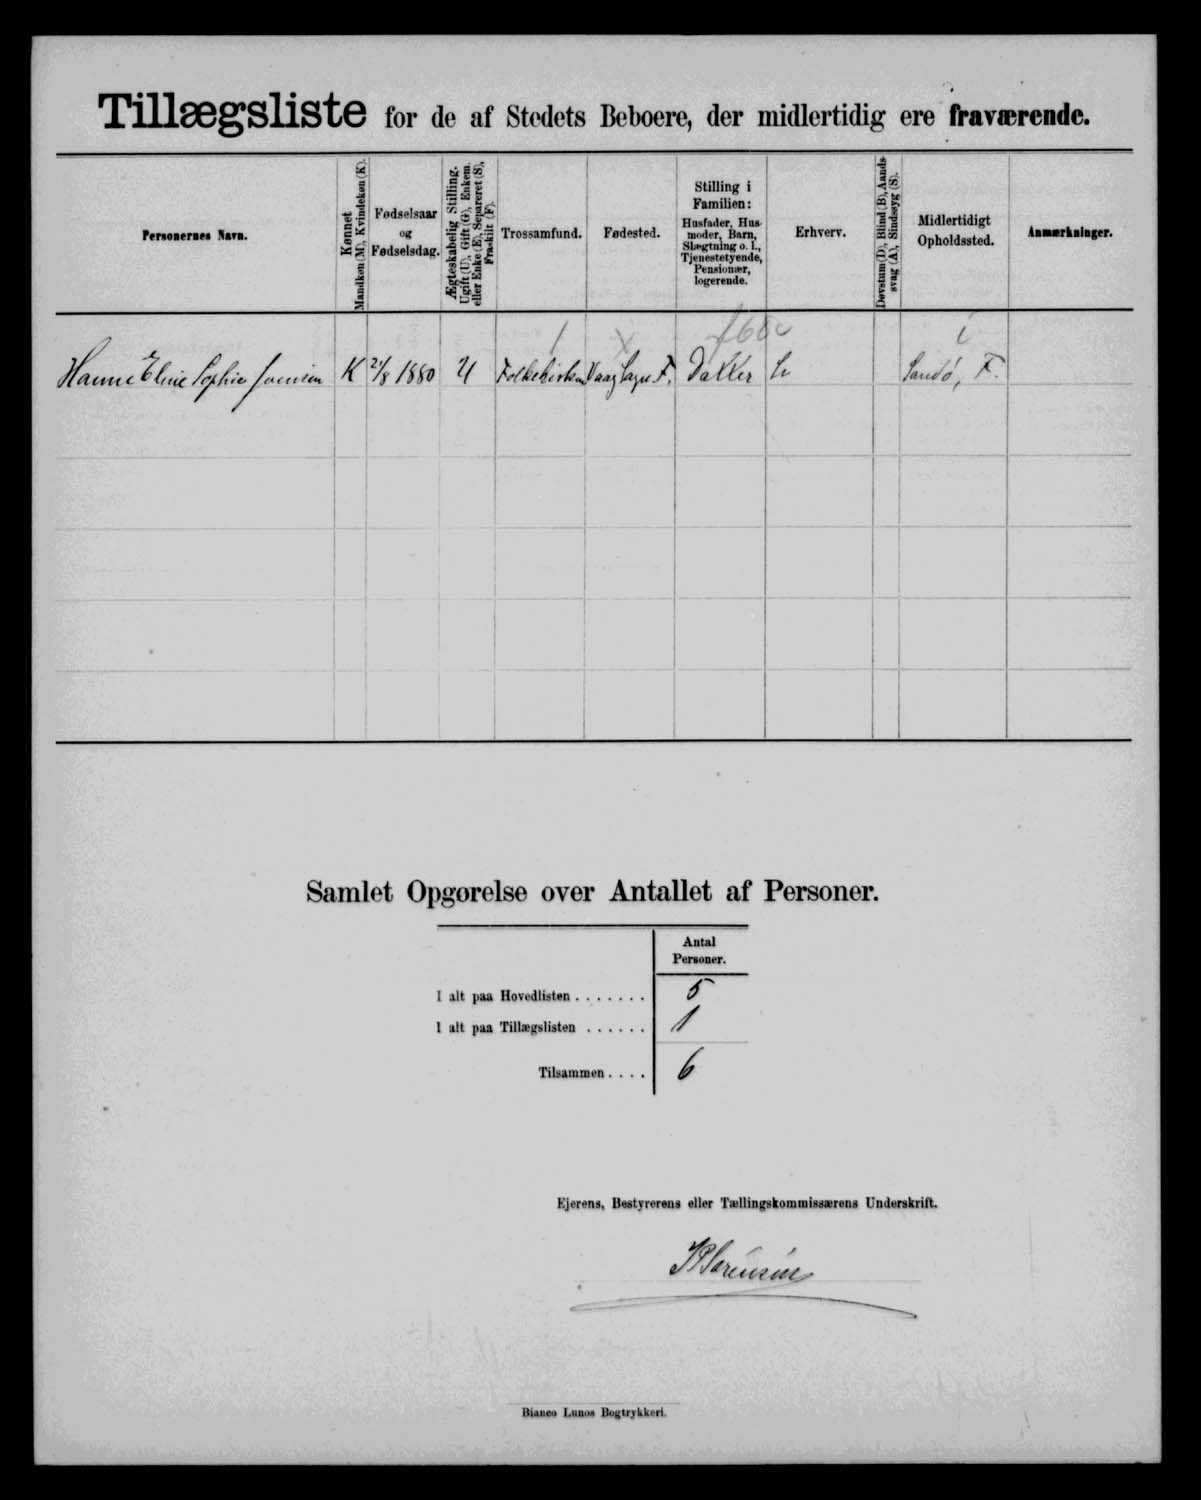 Tillægsliste for de af Stedets Beboere, der midlertidig ere fraværende.
Personernes Navn.
Kønnet
Mandkøn (M), Kvindekøn (K).
Fødselsaar
og
Fødselsdag.
Ægteskabelig Stilling.
Ugift (U), Gift (G), Enkem.
eller Enke (E), Separeret (S),
Fraskilt (F).
Trossamfund.
Fødested.
Stilling i
Familien:
Husfader, Hus-
moder, Barn,
Slægtning o. l.,
Tjenestetyende,
Pensionær,
logerende.
Erhverv.
Døvstum (D), Blind (B), Aands-
svag (A), Sindssyg (S).
Midlertidigt
Opholdssted.
Anmærkninger.
Hanne Eline Sophie K 21/8 1880 U Folkekirken Vaag F. Datter Sandø, F.
Samlet Opgørelse over Antallet af Personer.
Antal
Personer.
I alt paa Hovedlisten ....... 5
I alt paa Tillægslisten ...... 1
Tilsammen .... 6
Ejerens, Bestyrerens eller Tællingskommissærens Underskrift.
Sørensen
Bianco Lunos Bogtrykkeri.